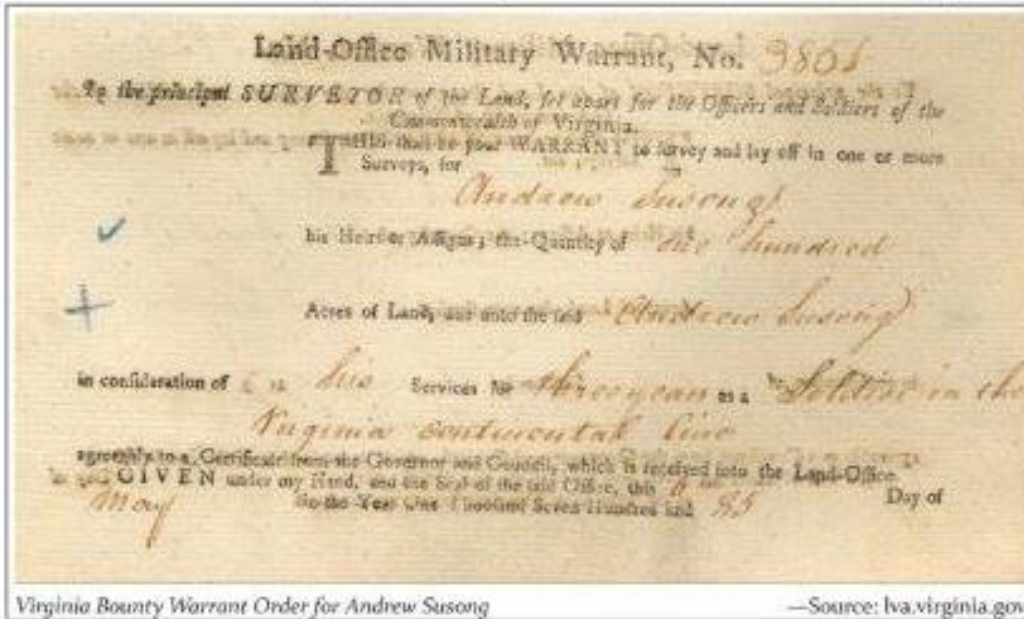 Land-Office Military Warrant, No. 3801
To the principal SURVEYOR of the Land, set apart for the Officers and Soldiers of the
Commonwealth of Virginia.
THIS shall be your WARRANT to survey and lay off in one or more
Surveys, for
Andrew Susong
his Heirs or Assigns, the Quantity of one hundred
Acres of Land, due unto the said Andrew Susong
in consideration of his Services for three years as a Soldier in the
Virginia continental line
agreeably to a Certificate from the Governor and Council, which is received into the Land-Office.
GIVEN under my Hand, and the Seal of the said Office, this Day of
May In the Year One Thousand Seven Hundred and 85
Virginia Bounty Warrant Order for Andrew Susong
—Source: lva.virginia.gov